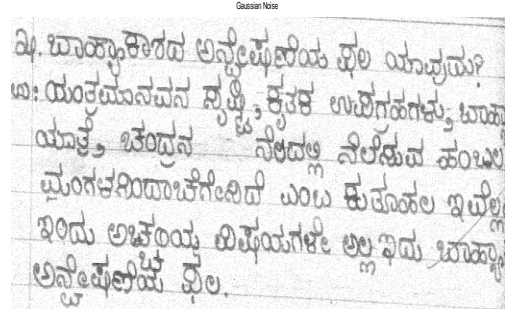 Gaussian Noise
೩. ಬಾಹ್ಯಾಕಾಶದ ಅನ್ವೇಷಣೆಯ ಫಲ ಯಾವುದು?
ಉ: ಯಂತ್ರಮಾನವನ ಸೃಷ್ಟಿ, ಕೃತಕ ಉಪಗ್ರಹಗಳು, ಬಾಹ್ಯ
ಯಾತ್ರೆ, ಚಂದ್ರನ ನೆಲದಲ್ಲಿ ನೆಲೆಸುವ ಹಂಬಲ
ಮಂಗಳನಿಂದಾಚೆಗೇನಿದೆ ಎಂಬ ಕುತೂಹಲ ಇವೆಲ್ಲ
ಇಂದು ಅಚ್ಚರಿಯ ವಿಷಯಗಳೇ ಅಲ್ಲ ಇದು ಬಾಹ್ಯಾ
ಅನ್ವೇಷಣೆಯ ಫಲ.